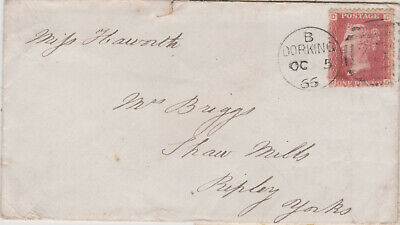 Miss Haworth
B
DORKING
OC 5
66
POSTAGE
ONE PENNY
Mrs Briggs
Shaw Mills
Ripley
Yorks